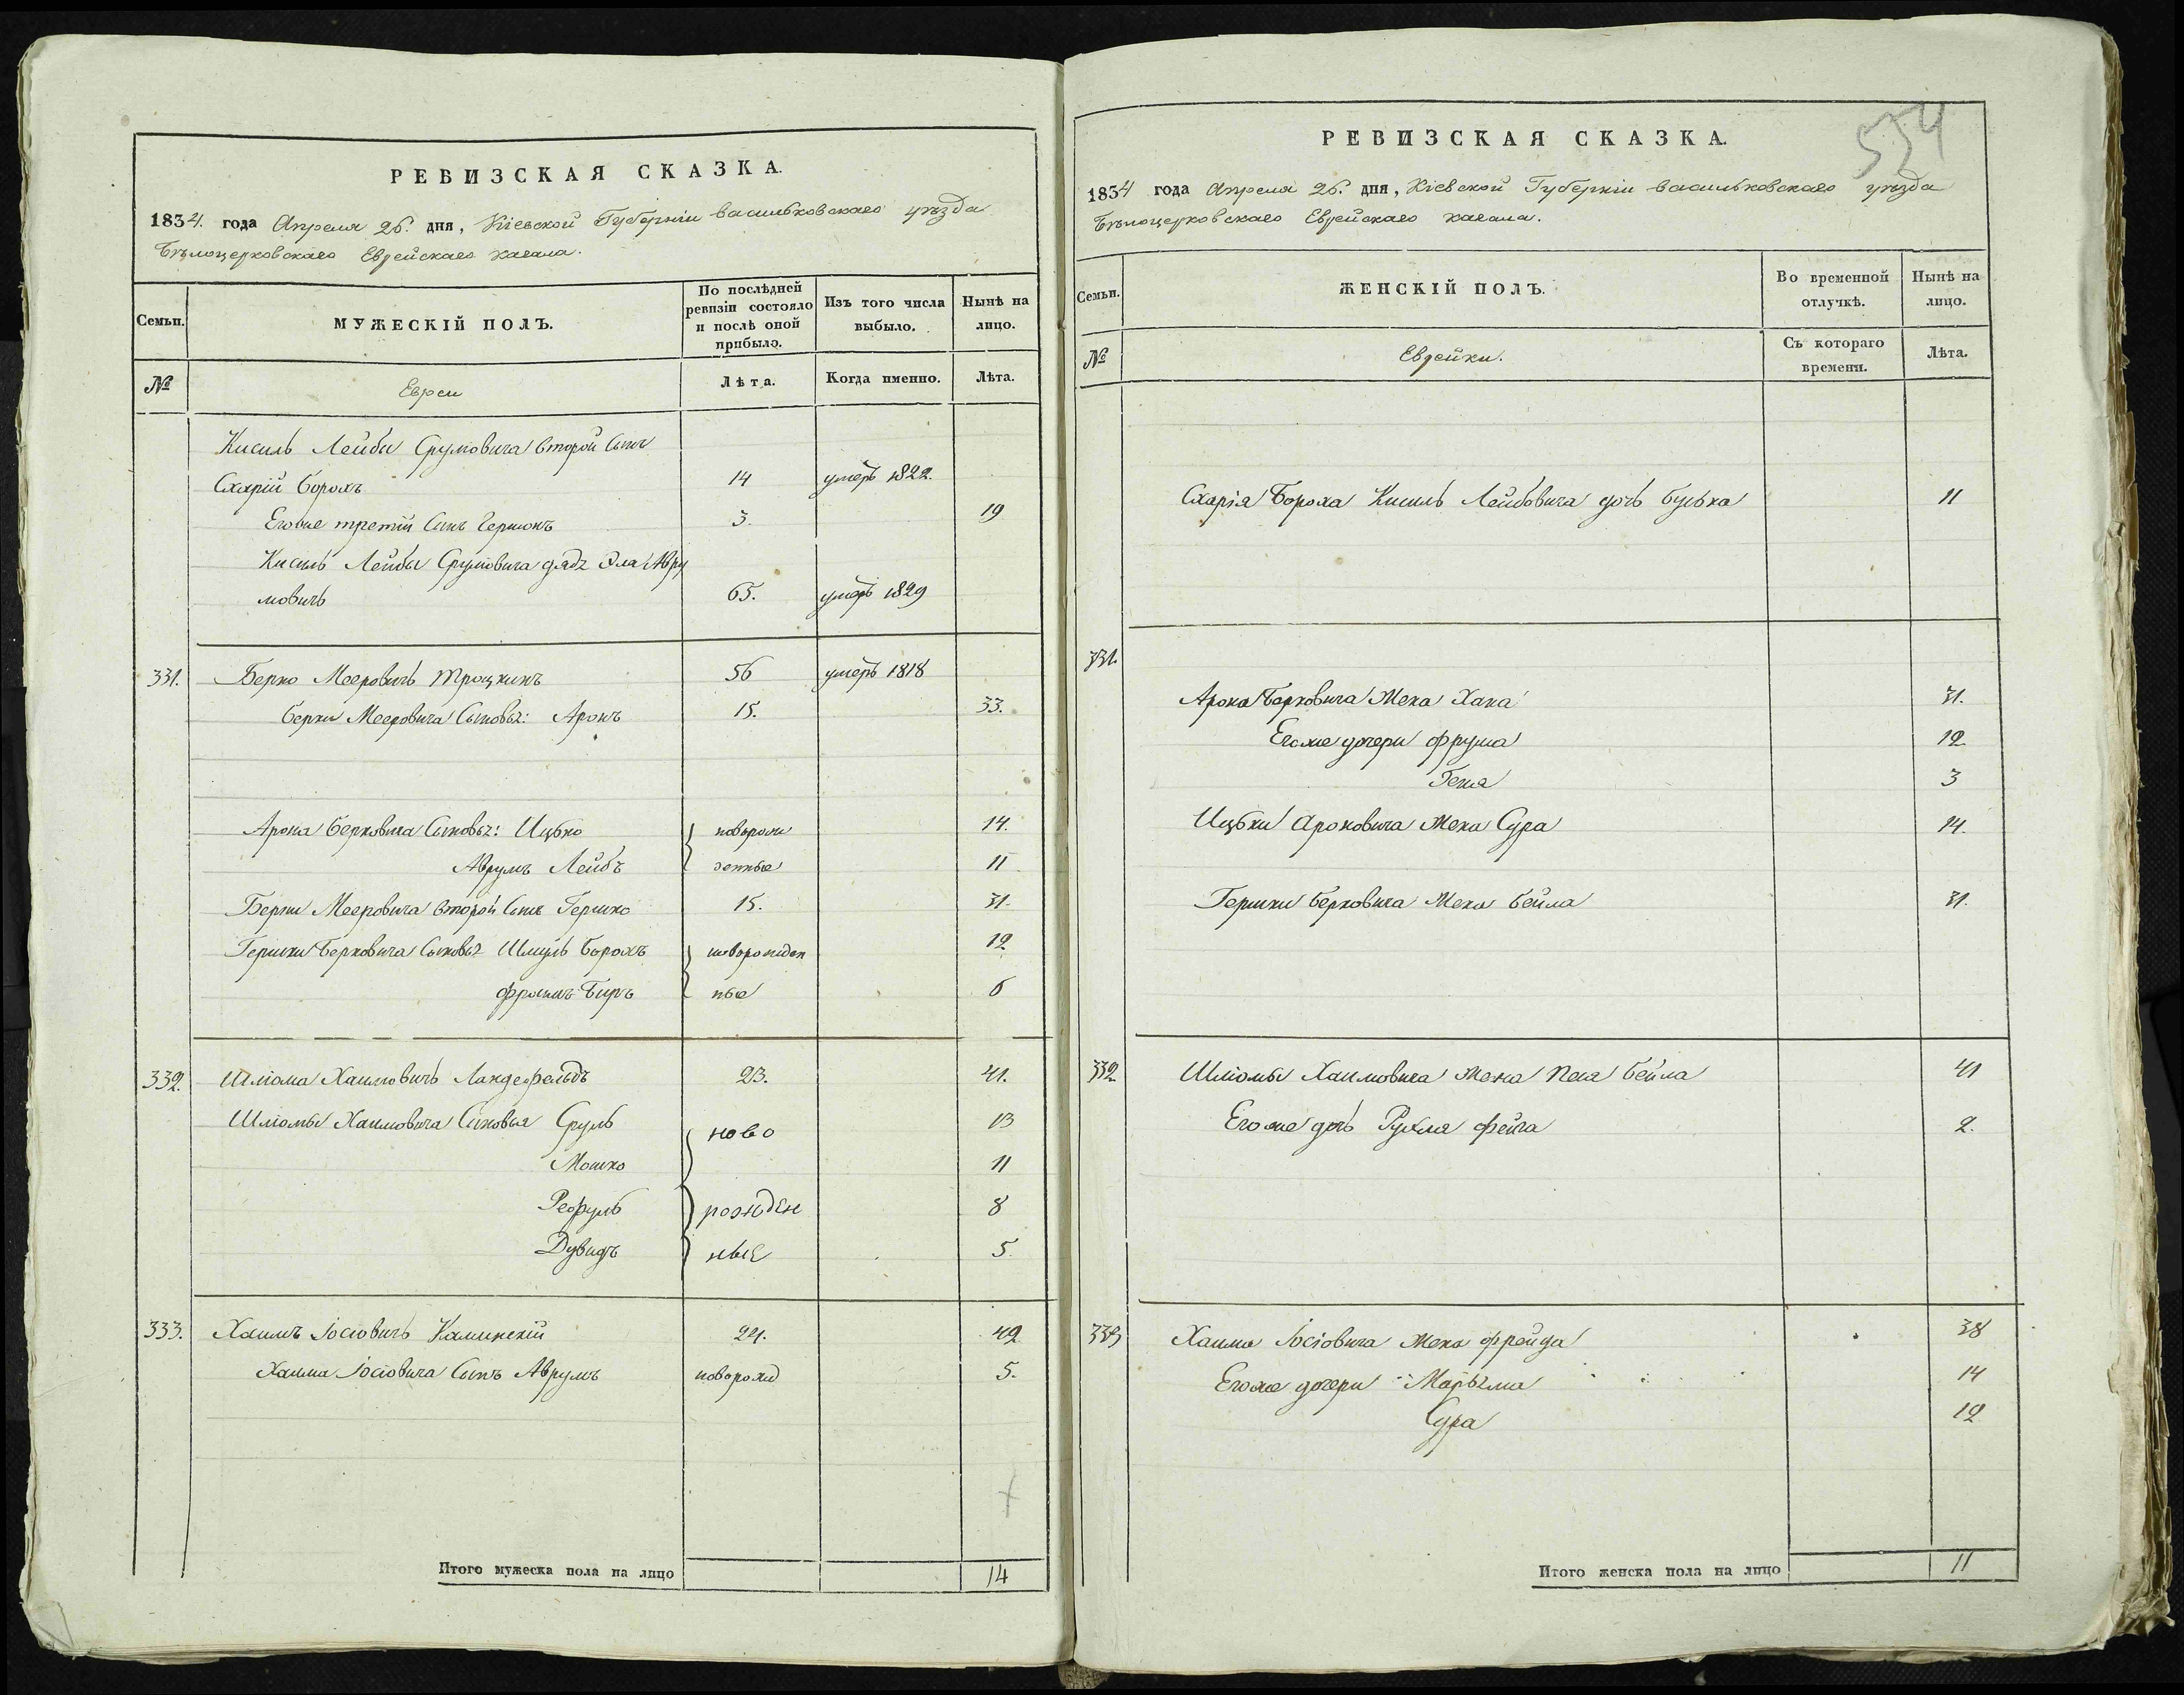 РЕВИЗСКАЯ СКАЗКА.
1834. года Апреля 26. дня, Кіевской Губерніи васильковскаго уѣзда
Бѣлоцерковскаго Еврейскаго кагала.
Семьи.
МУЖЕСКІЙ ПОЛЪ.
По послѣдней ревизіи состояло и послѣ оной прибыло.
Изъ того числа выбыло.
Нынѣ на лицо.
№
Евреи
Лѣта.
Когда именно.
Лѣта.
Кисиль Лейбы Срумовича второй сынъ
Схарій Борохъ 14 умеръ 1822.
Егоже третій сынъ Гершонъ 3. 19
Кисиль Лейбы Срумовича дядъ Эла Авру
мовичъ 65. умеръ 1829
331. Берко Мееровичъ Троцкинъ 56 умеръ 1818
Берки Мееровича сыновьꙗ: Аронъ 15. 33.
Арона Берковича сыновьꙗ: Ицько новорож 14.
Аврумъ Лейбъ денные 11
Берки Мееровича второй сынъ Гершко 15. 31.
Гершки Берковича сыновьꙗ Шмуль Борохъ новорожден 12
Фроимъ Биръ ные 6
332. Шліома Хаимовичъ Ландефельдъ 23. 41.
Шліомы Хаимовича сыновья Сруль ново 13
Мошко 11
Рефуль рожден 8
Дувидъ ные 5.
333. Хаимъ Іосіовичъ Каминскій 24. 42
Хаима Іосіовича сынъ Аврумъ новорожд 5.
Итого мужеска пола на лицо 14
РЕВИЗСКАЯ СКАЗКА.
554
1834 года Апреля 26. дня, Кіевской Губерніи васильковскаго уѣзда
Бѣлоцерковскаго Еврейскаго кагала.
Семьи.
ЖЕНСКІЙ ПОЛЪ.
Во временной отлучкѣ.
Нынѣ на лицо.
№
Еврейки.
Съ котораго времени.
Лѣта.
Схарія Бороха Кисиль Лейбовича дочь Буська 11
331.
Арона Берковича жена Хана 31.
Егоже дочери Фрума 12
Геня 3
Ицьки Ароновича жена Сура 14.
Гершки Берковича жена Бейла 31.
332. Шліомы Хаимовича жена Песя Бейла 41
Егоже дочь Рухля Фейга 2.
333 Хаима Іосіовича жена Фрейда 38
Егоже дочери Марьꙗма 14
Сура 12
Итого женска пола на лицо 11